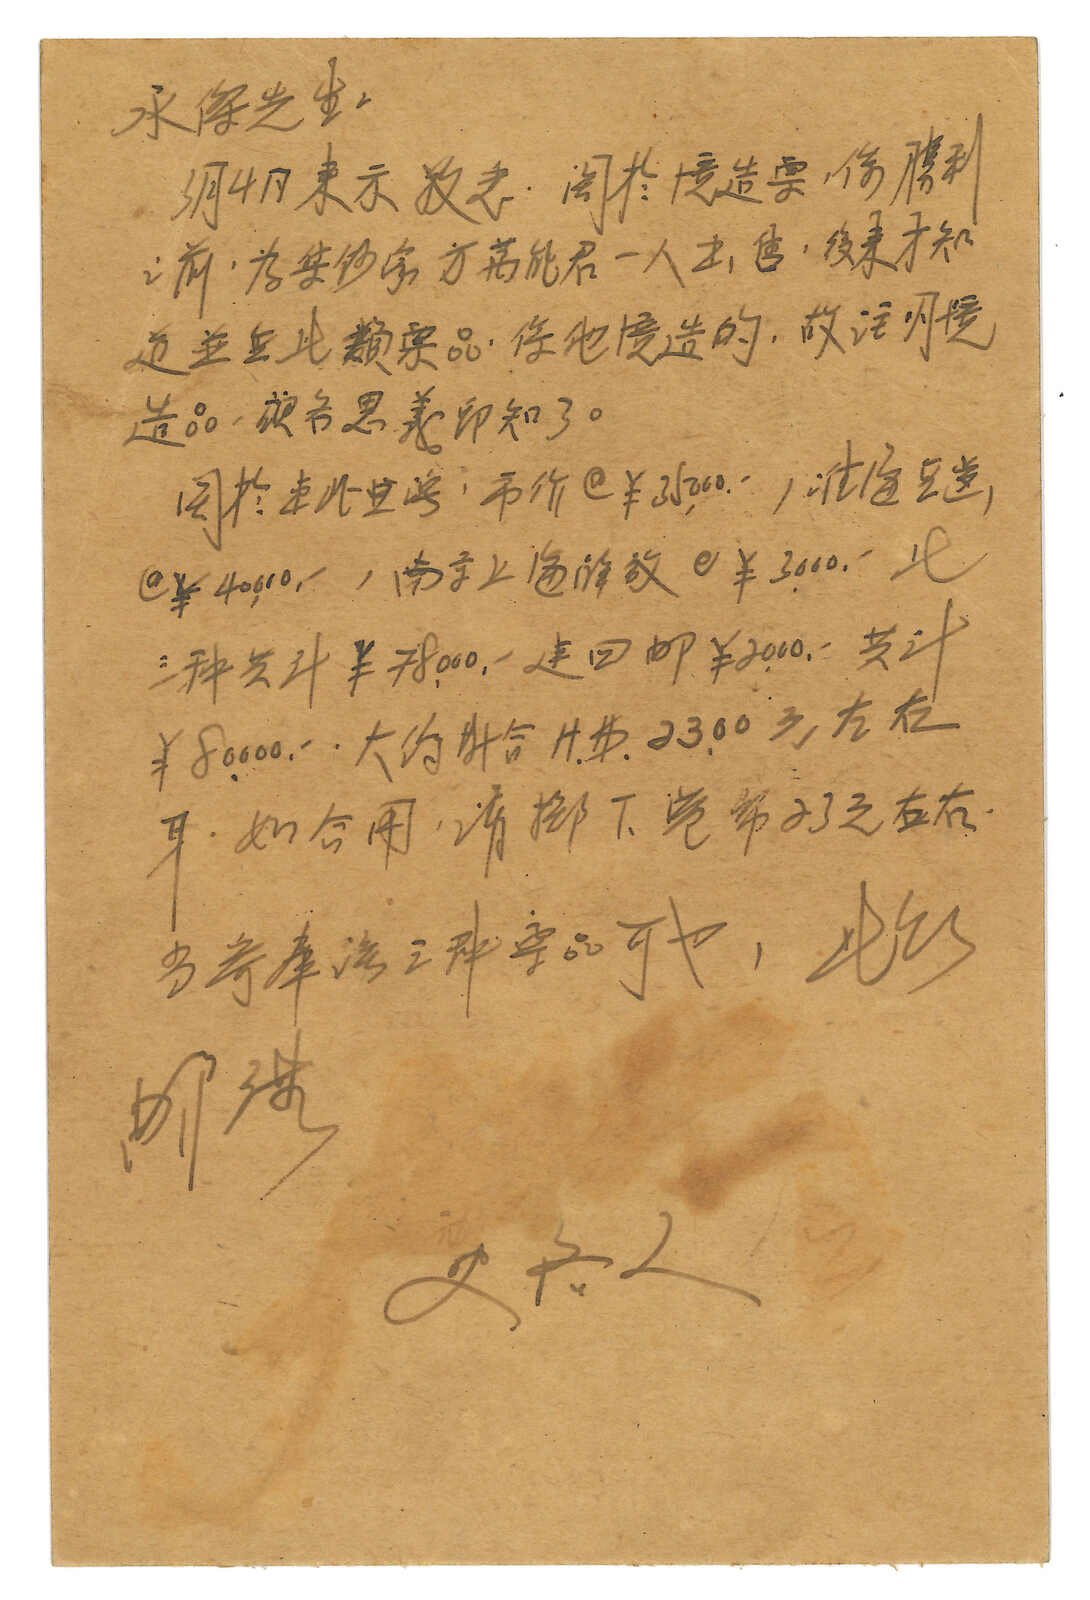 永傑先生、
3月4日来示敬悉. 関於臆造票,係勝利
之前,為集鈔家方萬能君一人出售,後来才知
道並無此類票品.係他臆造的,故註明臆
造品,顧名思義即知了。
関於 市价@¥35,000.-,淮海
@¥40,000.-,南京上海解放@¥3,000.- 此
三种共计¥78,000.- 連回邮¥2,000.- 共计
¥80,000.-. 大约折合H.$. 23.00元左右
耳. 如合用,请擲下港幣23元左右.
当寄奉该三种票品可也, 此颂
邮祺
史